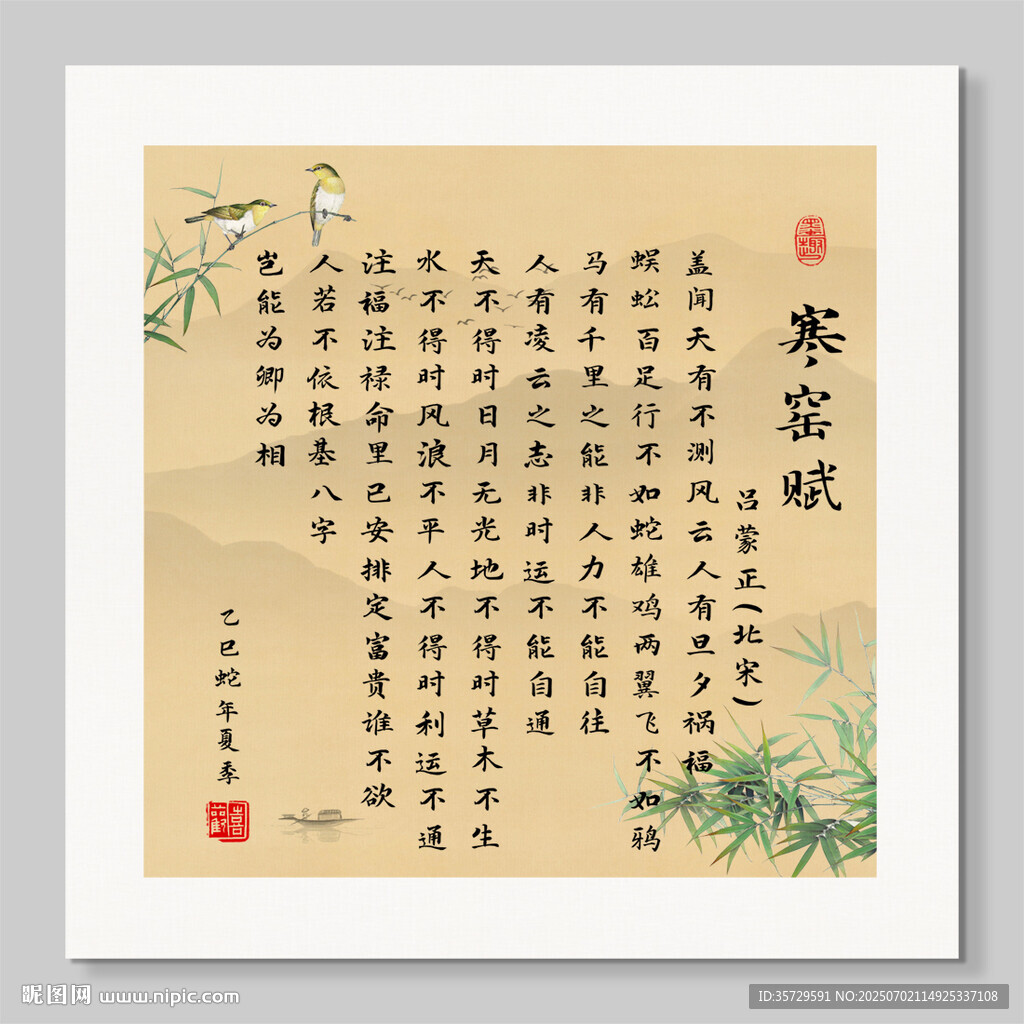 墨趣
寒窑赋
吕蒙正(北宋)
盖闻天有不测风云人有旦夕祸福
蜈蚣百足行不如蛇雄鸡两翼飞不如鸦
马有千里之能非人力不能自往
人有凌云之志非时运不能自通
天不得时日月无光地不得时草木不生
水不得时风浪不平人不得时利运不通
注福注禄命里已安排定富贵谁不欲
人若不依根基八字
岂能为卿为相
乙巳蛇年夏季
昵图网 www.nipic.com
ID:35729591 NO:20250702114925337108